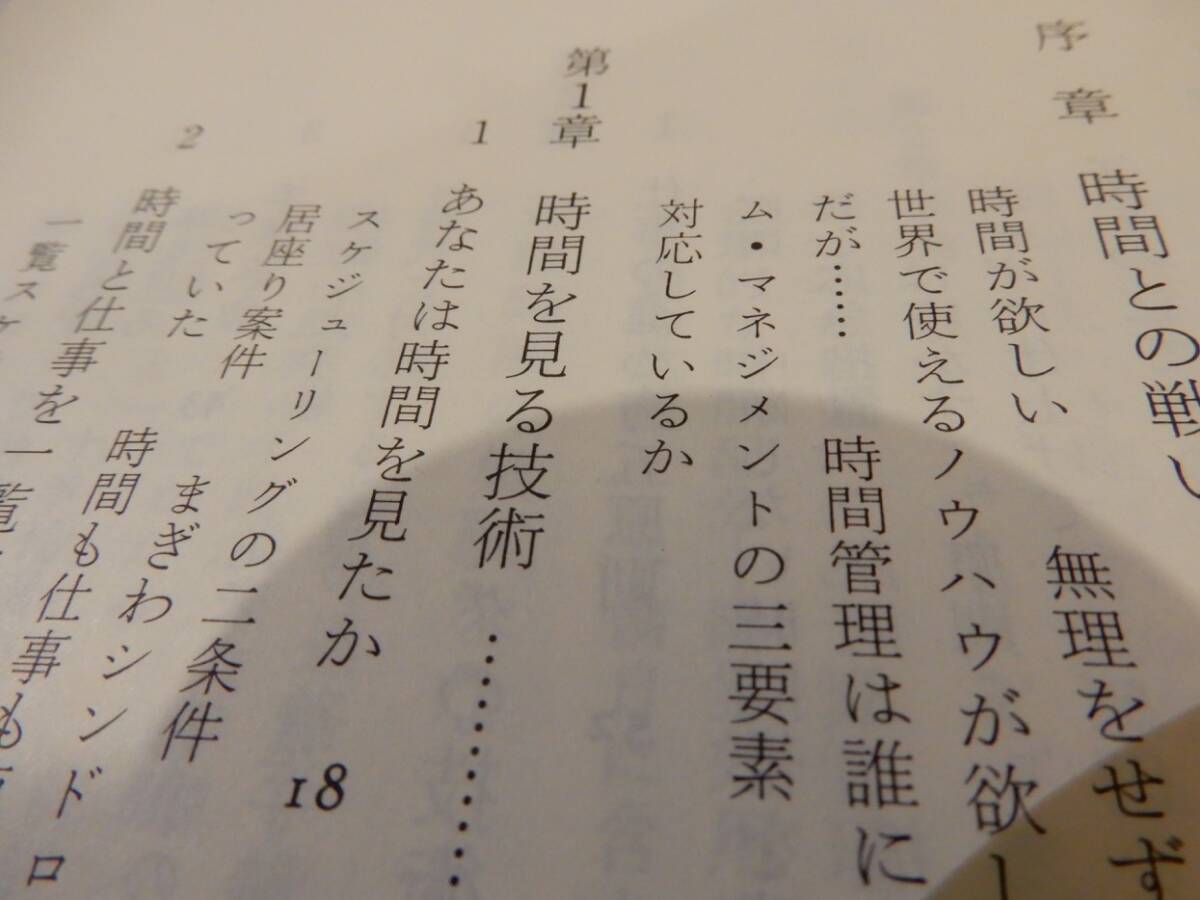 序章 時間との戦い
時間が欲しい 無理をせず
世界で使えるノウハウが欲し
だが…… 時間管理は誰に
ム・マネジメントの三要素
対応しているか
第1章 時間を見る技術…………
1 あなたは時間を見たか 18
スケジューリングの二条件
居座り案件 まぎわシンドロ
っていた 時間も仕事も
2 時間と仕事を一覧
一覧スケ